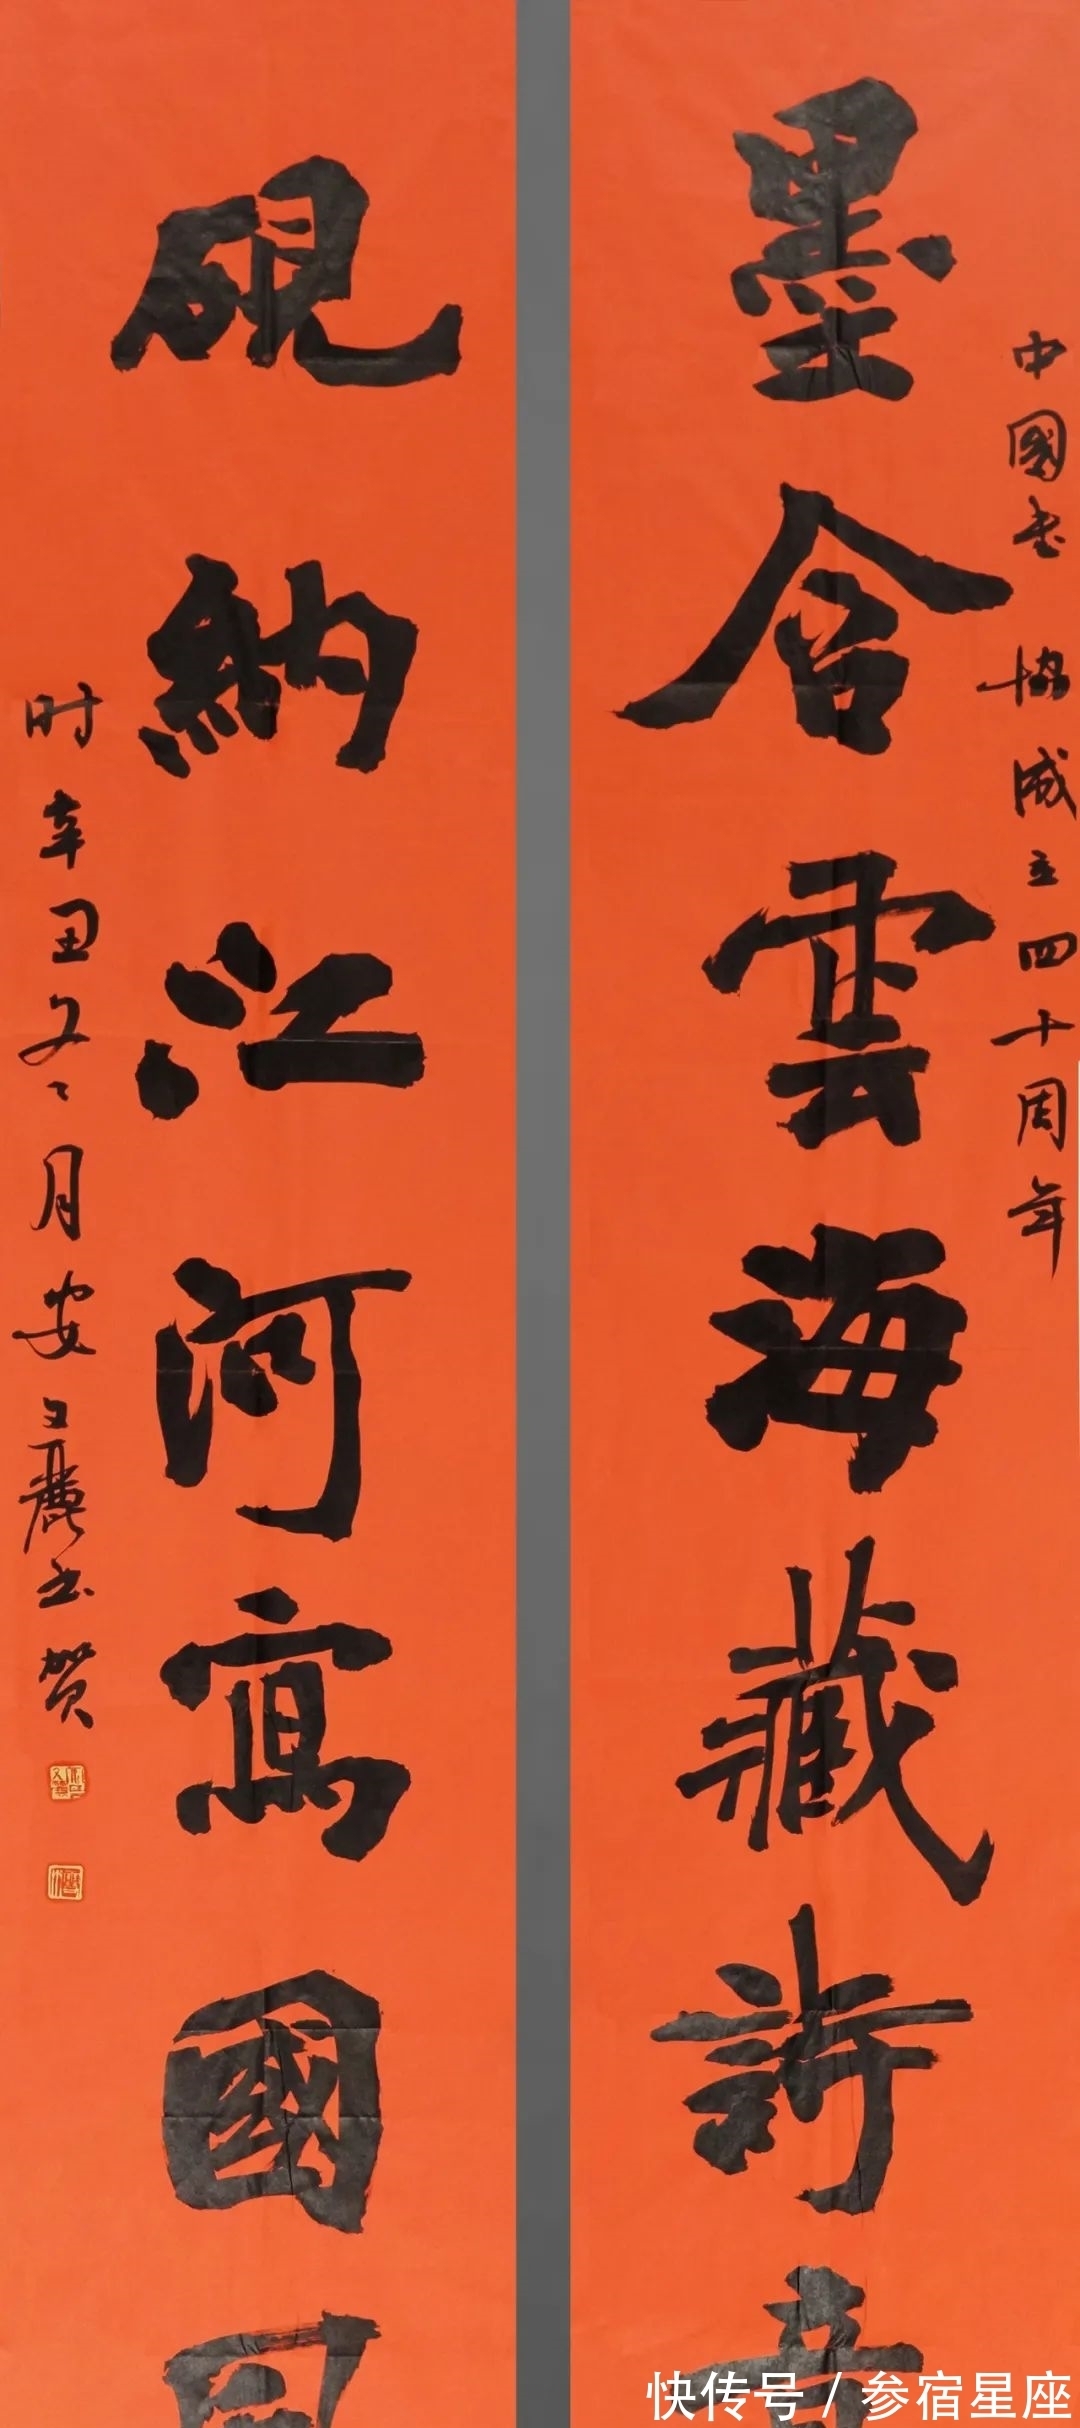 中國書 協成立四十周年
墨含雲海藏詩
硯納江河寫國
时辛丑冬月安文麗书贺
快传号 / 参宿星座